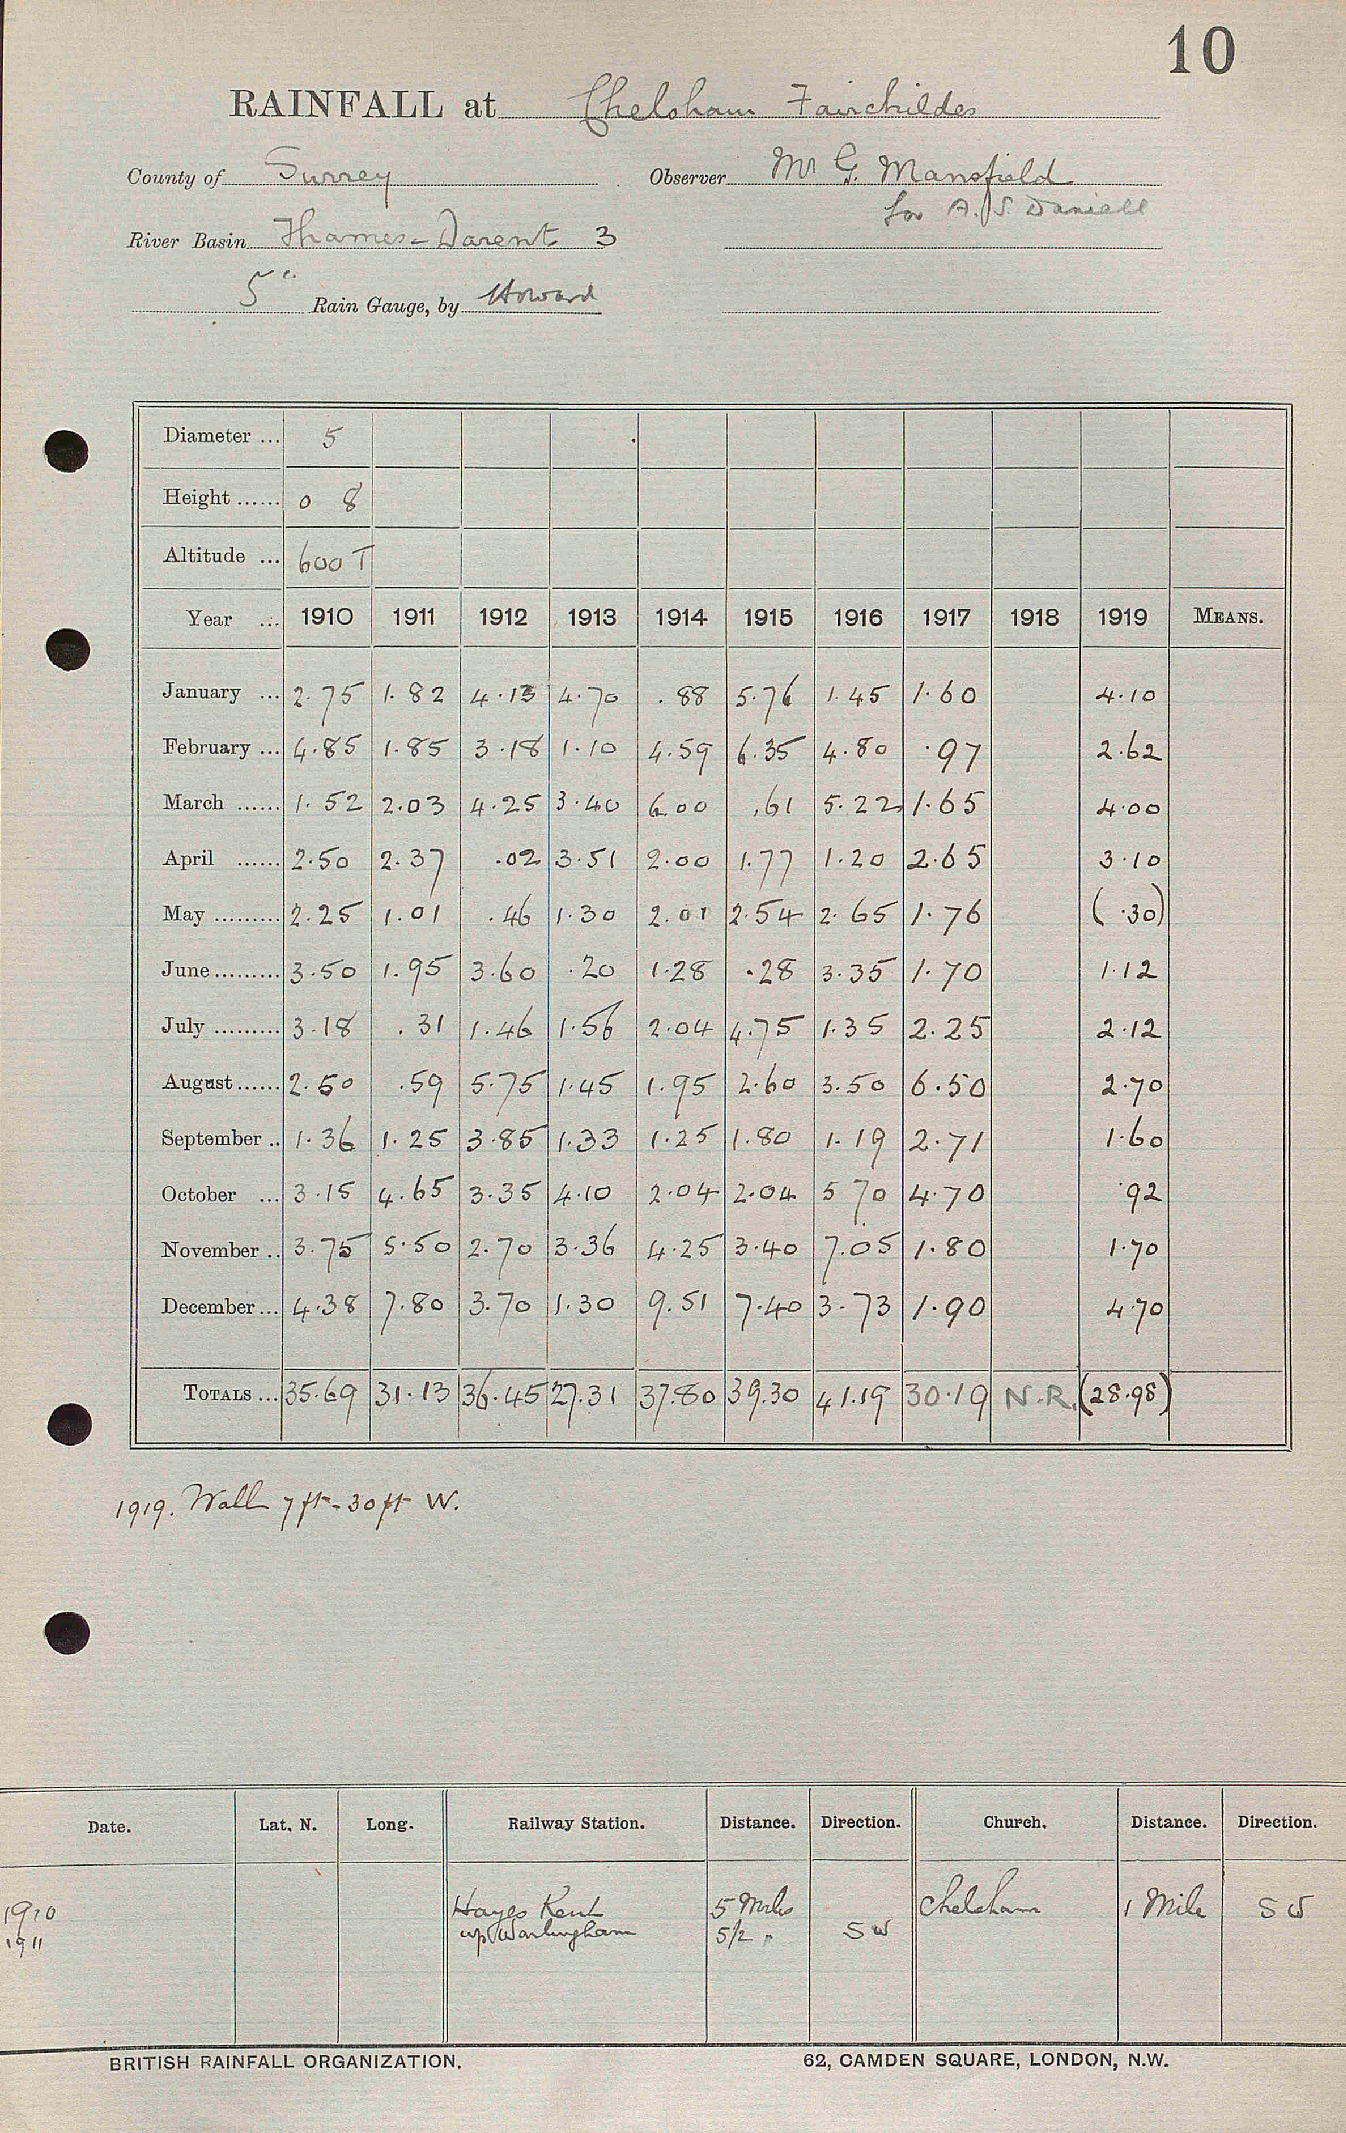 10
RAINFALL at Chelsham Fairchildes
County of Surrey Observer Mr G. Mansfield
for A. S. Daniell
River Basin Thames-Darent 3
5" Rain Gauge, by Howard
Diameter ... 5
Height ...... 0 8
Altitude ... 600 T
Year ... 1910 1911 1912 1913 1914 1915 1916 1917 1918 1919 MEANS.
January ... 2.75 1.82 4.13 4.70 .88 5.76 1.45 1.60 4.10
February ... 4.85 1.85 3.18 1.10 4.59 6.35 4.80 .97 2.62
March ...... 1.52 2.03 4.25 3.40 6.00 .61 5.22 1.65 4.00
April ...... 2.50 2.37 .02 3.51 2.00 1.77 1.20 2.65 3.10
May ......... 2.25 1.01 .46 1.30 2.01 2.54 2.65 1.76 (.30)
June ......... 3.50 1.95 3.60 .20 1.28 .28 3.35 1.70 1.12
July ......... 3.18 .31 1.46 1.56 2.04 4.75 1.35 2.25 2.12
August ...... 2.50 .59 5.75 1.45 1.95 2.60 3.50 6.50 2.70
September .. 1.36 1.25 3.85 1.33 1.25 1.80 1.19 2.71 1.60
October ... 3.15 4.65 3.35 4.10 2.04 2.04 5 70 4.70 .92
November .. 3.75 5.50 2.70 3.36 4.25 3.40 7.05 1.80 1.70
December ... 4.38 7.80 3.70 1.30 9.51 7.40 3.73 1.90 4.70
TOTALS ... 35.69 31.13 36.45 27.31 37.80 39.30 41.19 30.19 N.R. (28.98)
1919. Wall 7 ft - 30 ft W.
Date. Lat. N. Long. Railway Station. Distance. Direction. Church. Distance. Direction.
1910 Hayes Kent 5 Miles Chelsham 1 Mile SW
1911 Warlingham 5/2 " SW
BRITISH RAINFALL ORGANIZATION. 62, CAMDEN SQUARE, LONDON, N.W.